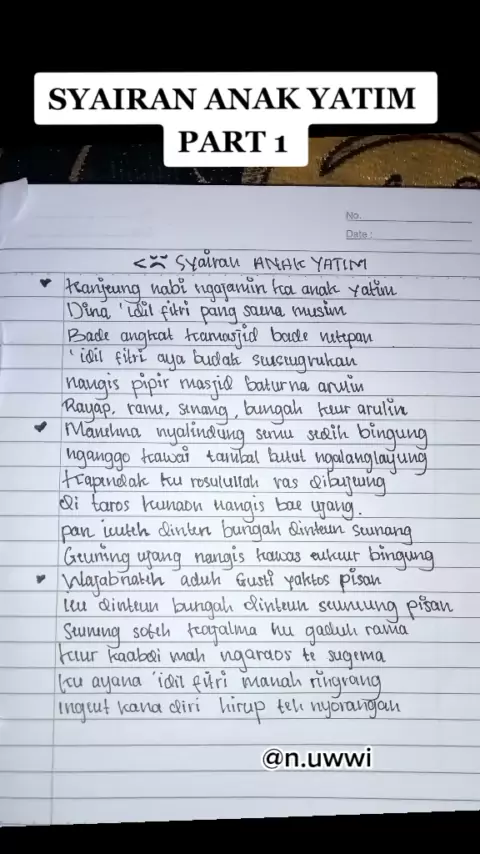 SYAIRAN ANAK YATIM
PART 1
No.
Date :
Syairan ANAK YATIM
Kanjeung nabi ngajamin ka anak yatim
Dina 'idil fitri pang saena musim
Bade angkat kamasjid bade netepan
'idil fitri aya budak susugrukan
nangis pipir masjid baturna arulin
Rayap, ramu, senang, bungah keur arulin
Manehna nyalindung semu sedih bingung
nganggo kawai tambal butut ngalanglayung
Kapendak ku rosulullah ras dibujung
di taros kunaon nangis bae ujang.
pan iuteh dinten bungah dinteun seunang
Geuning ujang nangis kawas eukeur bingung
Wajabnateh aduh Gusti yaktos pisan
ieu dinteun bungah dinteun seuneung pisan
Seuneng soteh kajalma nu gaduh rama
keur kaabdi mah ngaraos te sugema
ku ayana 'idil fitri manah ringrang
ingeut kana diri hirup teh nyorangan
@n.uwwi